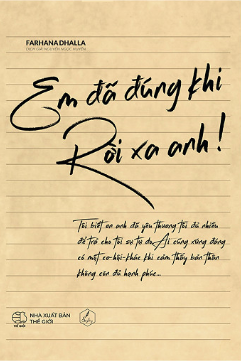 FARHANA DHALLA
Em đã đúng khi
Rời xa anh!
Tôi biết ơn anh đã yêu thương tôi đủ nhiều
để trả cho tôi sự tự do. Ai cũng xứng đáng
có một cơ-hội-khác khi cảm thấy bản thân
không còn đủ hạnh phúc...
NHÀ XUẤT BẢN
THẾ GIỚI